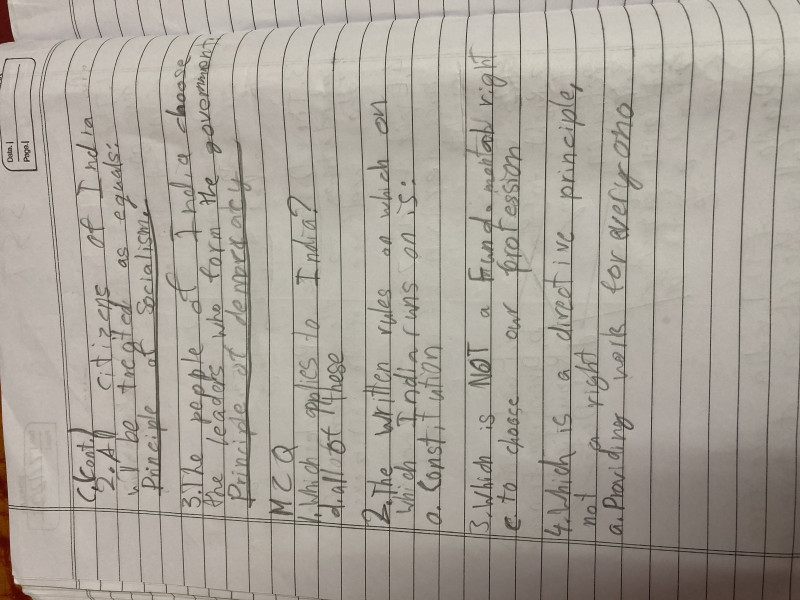 Date |
Page |
C, (Cont.)
2. All citizens of India
will be treated as equals:
Principle of Socialism.
3. The people of India choose
the leaders who form the government:
Principle of democracy
MCQ
1. Which applies to India?
d. all of these
2. The written rules on which on
which India runs on is:
a. Constitution
3. Which is NOT a Fundamental right
c to choose our profession
4. Which is a directive principle,
not a right
a. Providing work for everyone